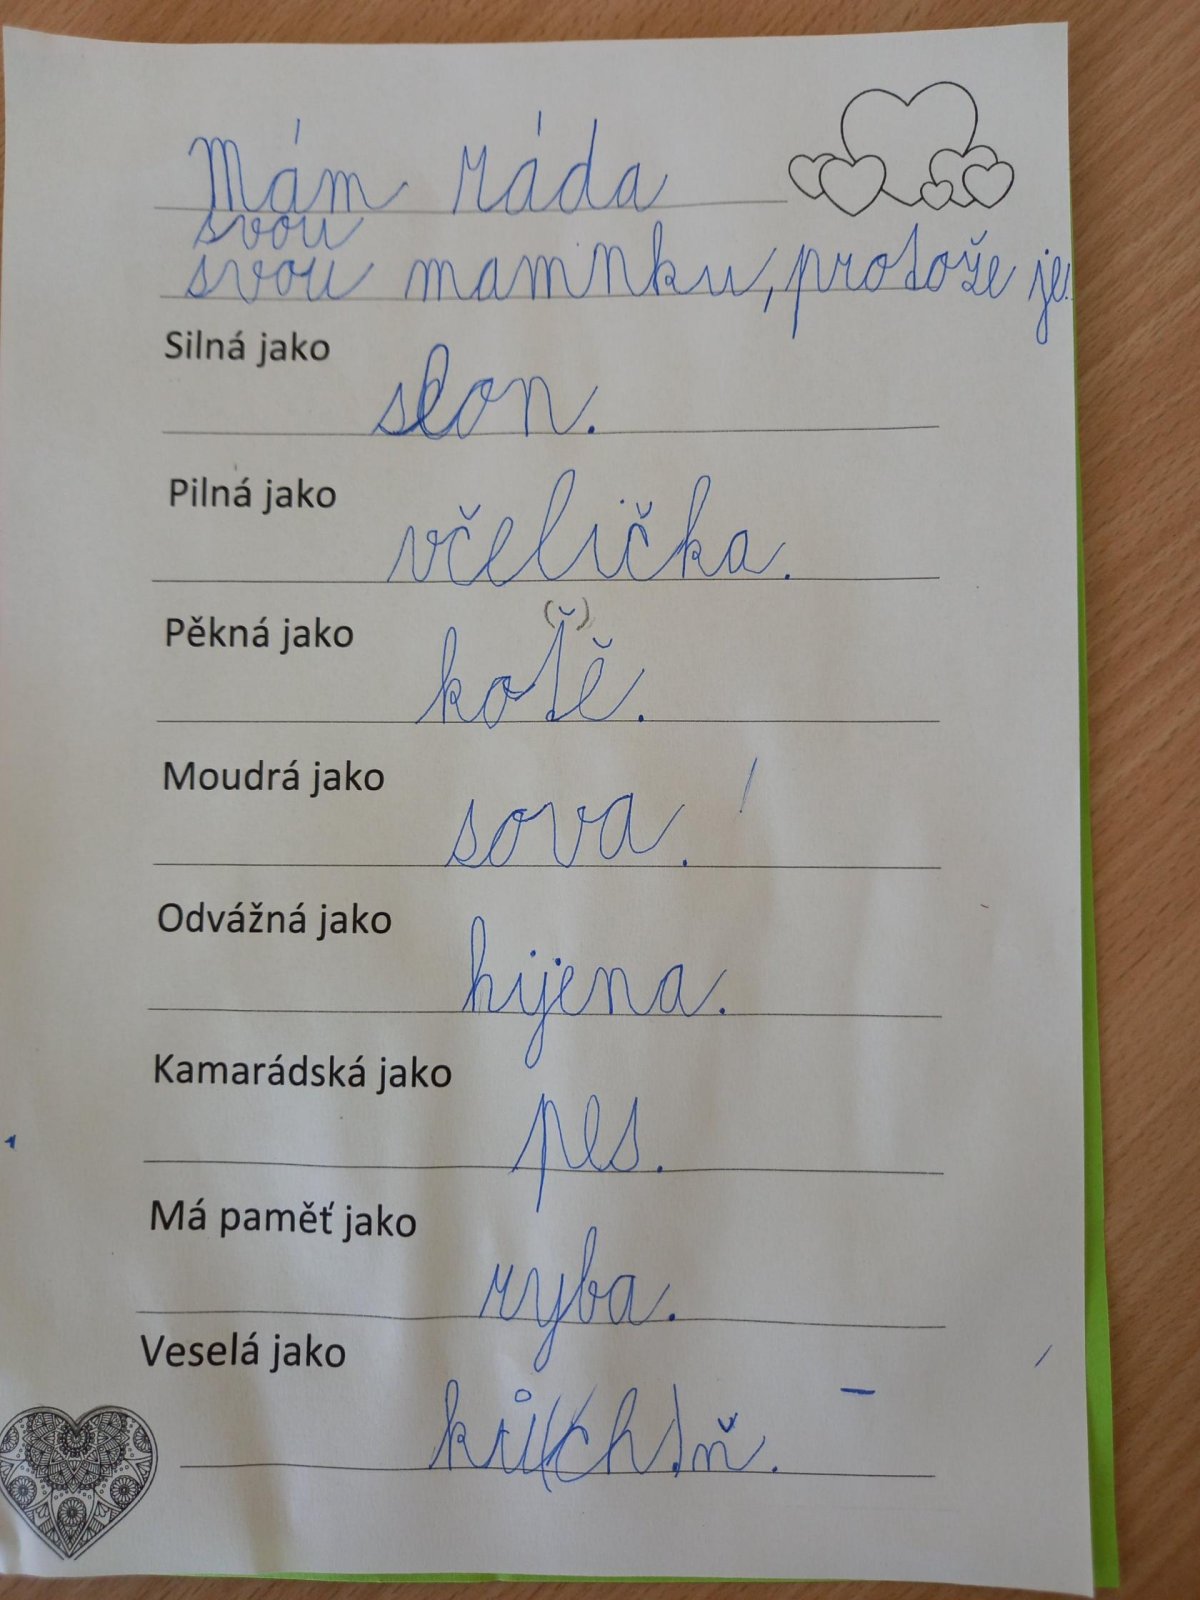 Mám ráda
svou
svou mamnku, protože je
Silná jako
slon.
Pilná jako
včelička.
Pěkná jako
kotě.
Moudrá jako
sova.
Odvážná jako
hijena.
Kamarádská jako
pes.
Má paměť jako
ryba.
Veselá jako
ků(ch)ň.